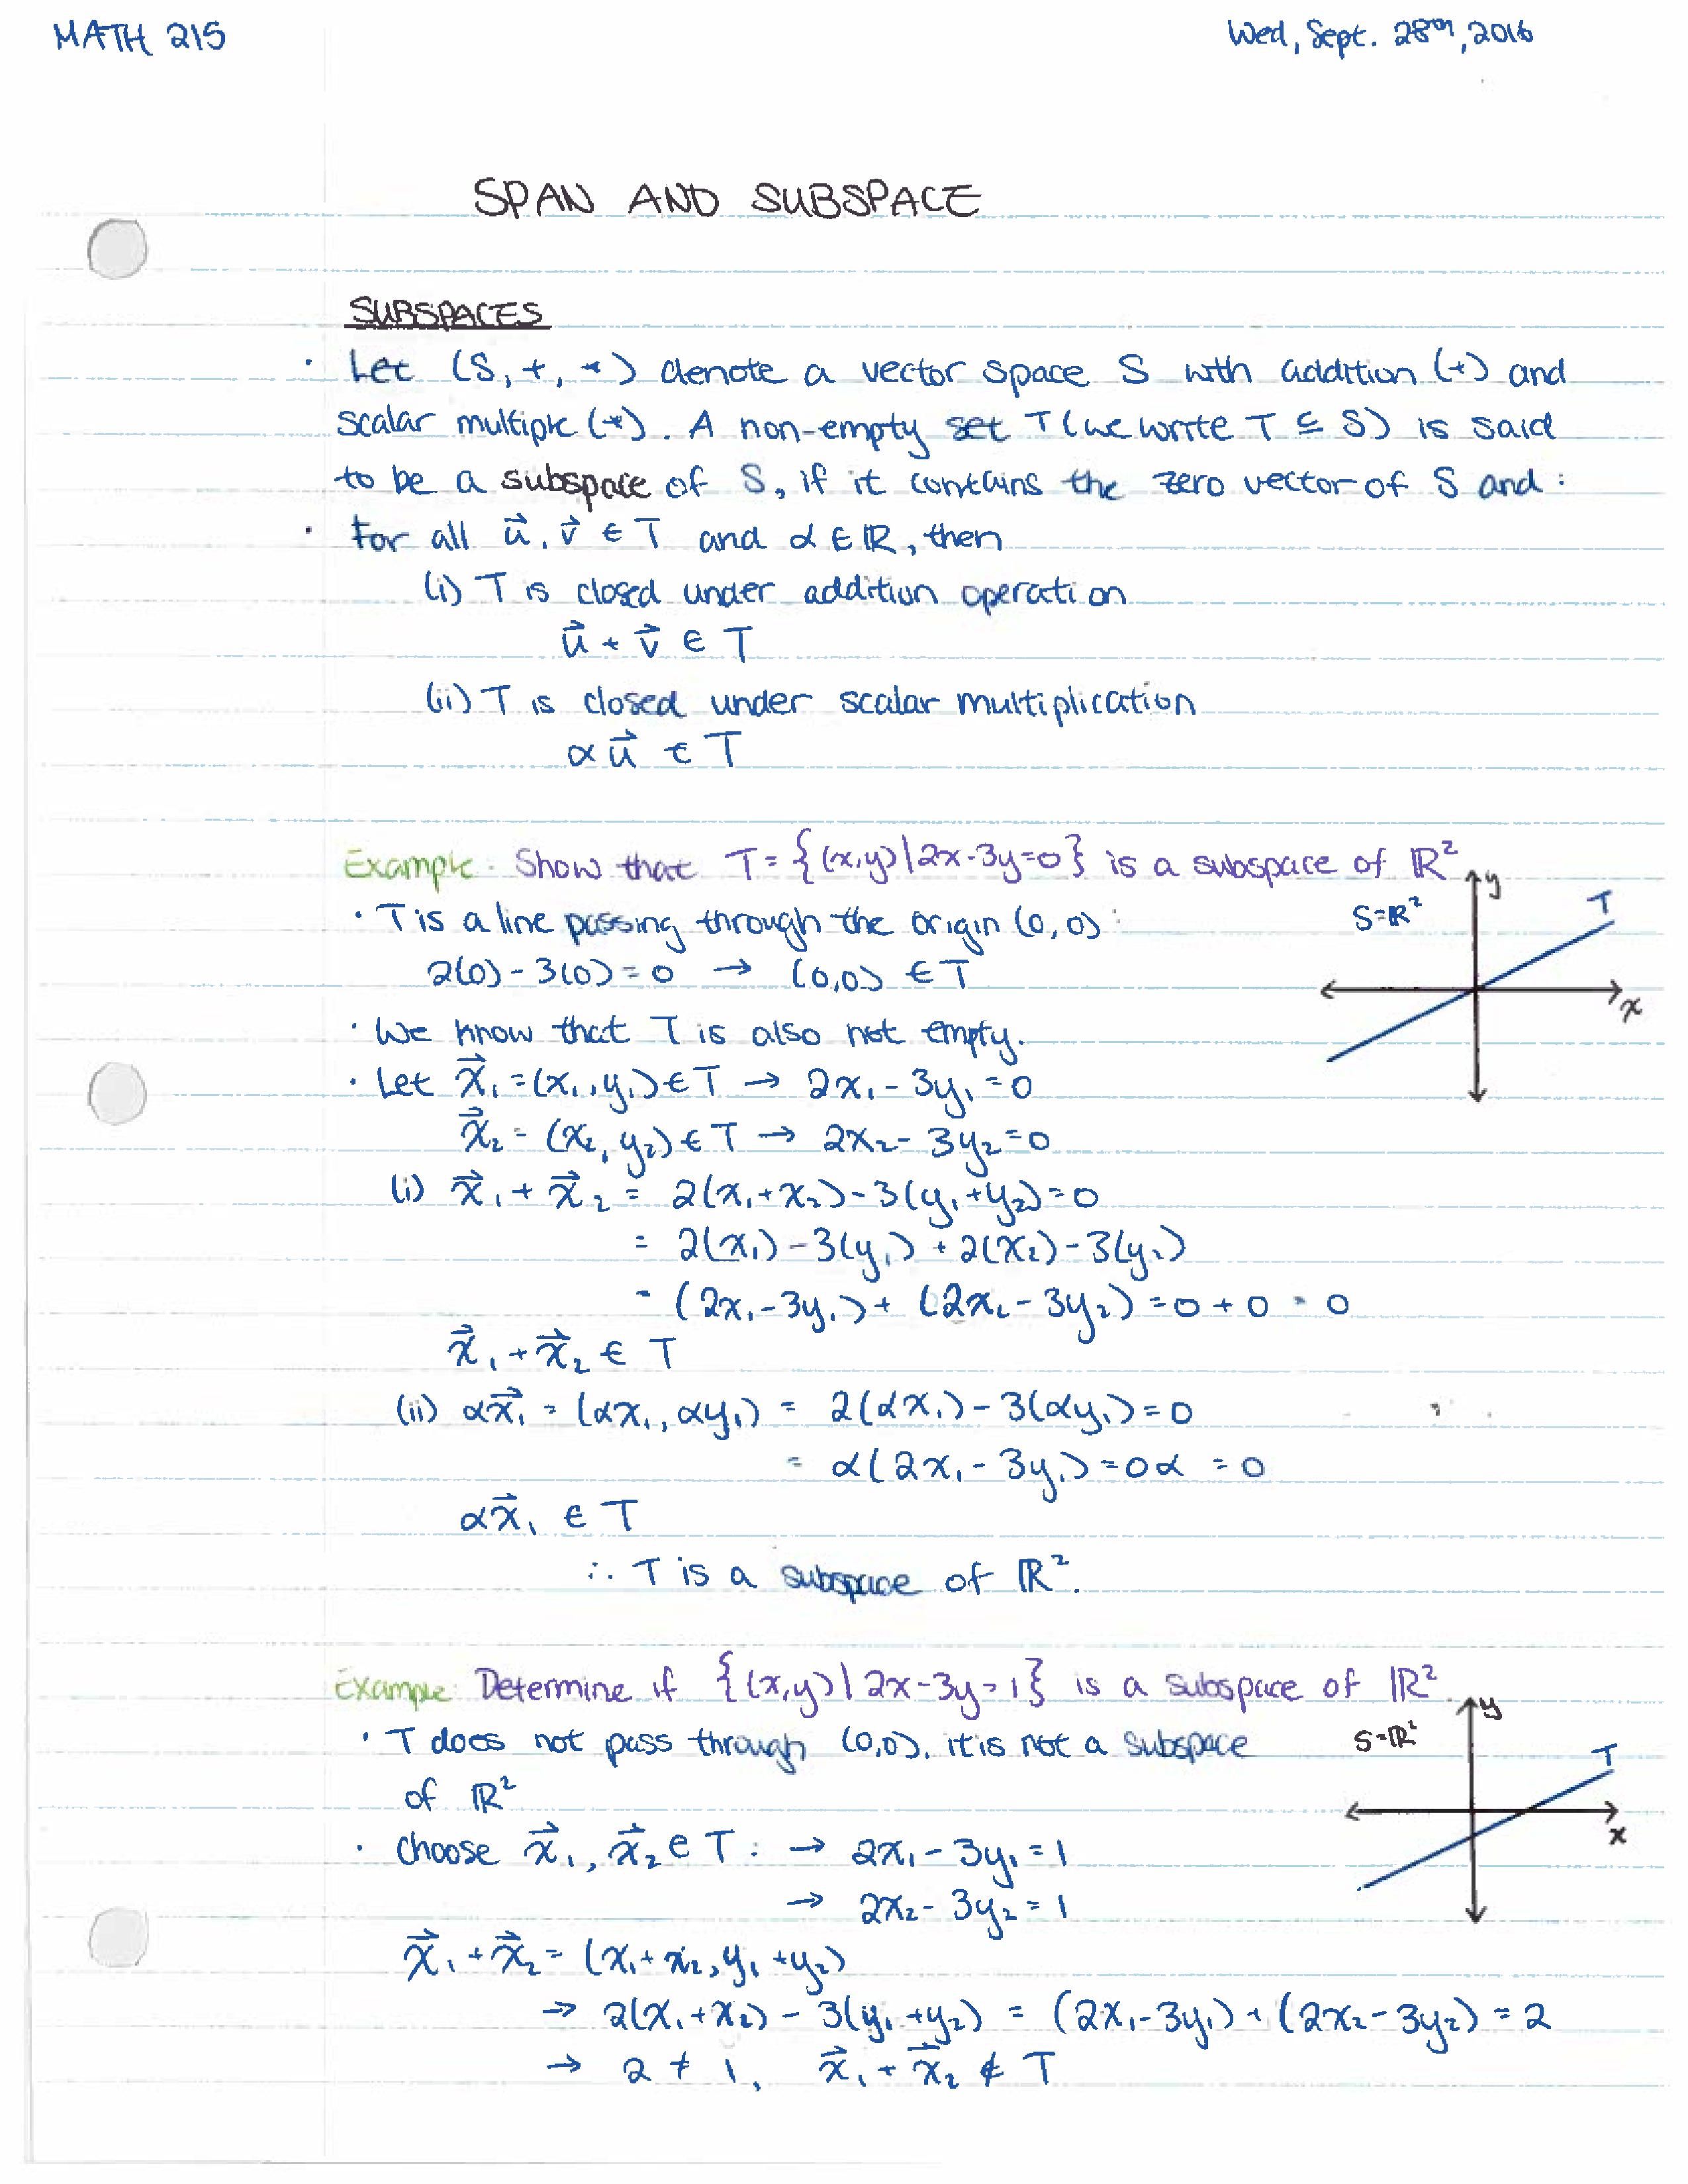 MATH 215
Wed, Sept. 28th, 2016
SPAN AND SUBSPACE
SUBSPACES
· Let (S, +, *) denote a vector space S with addition (+) and
scalar multiple (*). A non-empty set T (we write T ⊆ S) is said
to be a subspace of S, if it contains the zero vector of S and:
· For all u⃗, v⃗ ∈ T and α ∈ ℝ, then
(i) T is closed under addition operation
u⃗ + v⃗ ∈ T
(ii) T is closed under scalar multiplication
αu⃗ ∈ T
Example: Show that T = {(x,y) | 2x-3y=0} is a subspace of ℝ²
· T is a line passing through the origin (0,0):
2(0) - 3(0) = 0 → (0,0) ∈ T
· We know that T is also not empty.
· Let x⃗₁ = (x₁, y₁) ∈ T → 2x₁ - 3y₁ = 0
x⃗₂ = (x₂, y₂) ∈ T → 2x₂ - 3y₂ = 0
(i) x⃗₁ + x⃗₂ = 2(x₁+x₂) - 3(y₁+y₂) = 0
= 2(x₁) - 3(y₁) + 2(x₂) - 3(y₂)
= (2x₁ - 3y₁) + (2x₂ - 3y₂) = 0 + 0 = 0
x⃗₁ + x⃗₂ ∈ T
(ii) αx⃗₁ = (αx₁, αy₁) = 2(αx₁) - 3(αy₁) = 0
= α(2x₁ - 3y₁) = 0α = 0
αx⃗₁ ∈ T
∴ T is a subspace of ℝ².
S=ℝ²
y
T
x
Example: Determine if {(x,y) | 2x-3y=1} is a subspace of ℝ².
· T does not pass through (0,0), it is not a subspace
of ℝ²
· Choose x⃗₁, x⃗₂ ∈ T: → 2x₁ - 3y₁ = 1
→ 2x₂ - 3y₂ = 1
x⃗₁ + x⃗₂ = (x₁ + x₂, y₁ + y₂)
→ 2(x₁+x₂) - 3(y₁+y₂) = (2x₁-3y₁) + (2x₂-3y₂) = 2
→ 2 ≠ 1, x⃗₁ + x⃗₂ ∉ T
S=ℝ²
y
T
x